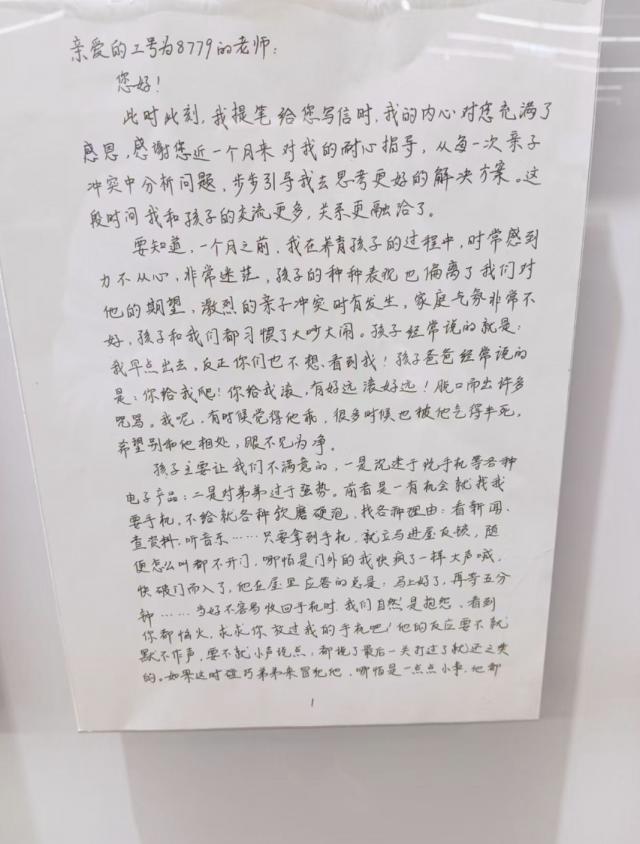 亲爱的工号为8779的老师：
您好！
此时此刻，我提笔给您写信时，我的内心对您充满了
感恩，感谢您近一个月来对我的耐心指导，从每一次亲子
冲突中分析问题，步步引导我去思考更好的解决方案。这
段时间我和孩子的交流更多，关系更融洽了。
要知道，一个月之前，我在养育孩子的过程中，时常感到
力不从心，非常迷茫，孩子的种种表现也偏离了我们对
他的期望，激烈的亲子冲突时有发生，家庭气氛非常不
好，孩子和我们都习惯了大吵大闹。孩子经常说的就是：
我早点出去，反正你们也不想看到我！孩子爸爸经常说的
是：你给我爬！你给我滚，有好远滚好远！脱口而出许多
咒骂。我呢，有时候觉得他乖，很多时候也被他气得半死，
希望别和他相处，眼不见为净。
孩子主要让我们不满意的，一是沉迷于玩手机等各种
电子产品；二是对弟弟过于强势。前者是一有机会就找我
要手机，不给就各种软磨硬泡，找各种理由：看新闻、
查资料、听音乐……只要拿到手机，就立马进屋反锁，随
便怎么叫都不开门，哪怕是门外的我快疯了一样大声喊，
快破门而入了，他在屋里应答的总是：马上好了，再等五分
钟……当好不容易收回手机时，我们自然是抱怨、看到
你都恼火，求求你放过我的手机吧！他的反应要不就
默不作声，要不就小声说点，都说了最后一关打过了就还之类
的。如果这时碰巧弟弟来冒犯他，哪怕是一点点小事，他都
1